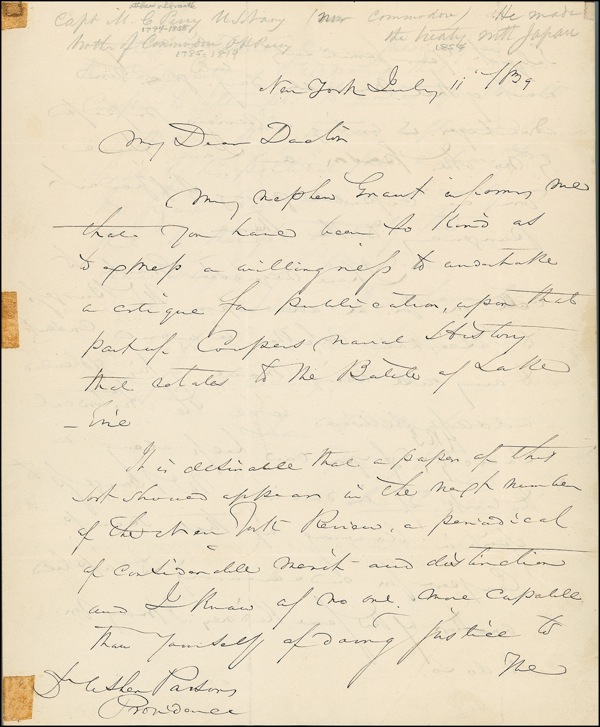 Capt M. C Perry U S Navy (now commodore) He made
1794-1858
brother of Commodore O H Perry the treaty with Japan
1785-1819 1854
New York July 11th /39
My Dear Doctor
My nephew Grant informs me
that you have been so kind as
to express a willingness to undertake
a critique for publication, upon that
part of Coopers Naval History
that relates to the Battle of Lake
Erie
It is desirable that a paper of this
sort should appear in the next number
of the New York Review, a periodical
of considerable merit and distinction
and I know of no one, more capable
than yourself of doing justice to
the
Dr Usher Parsons
Providence